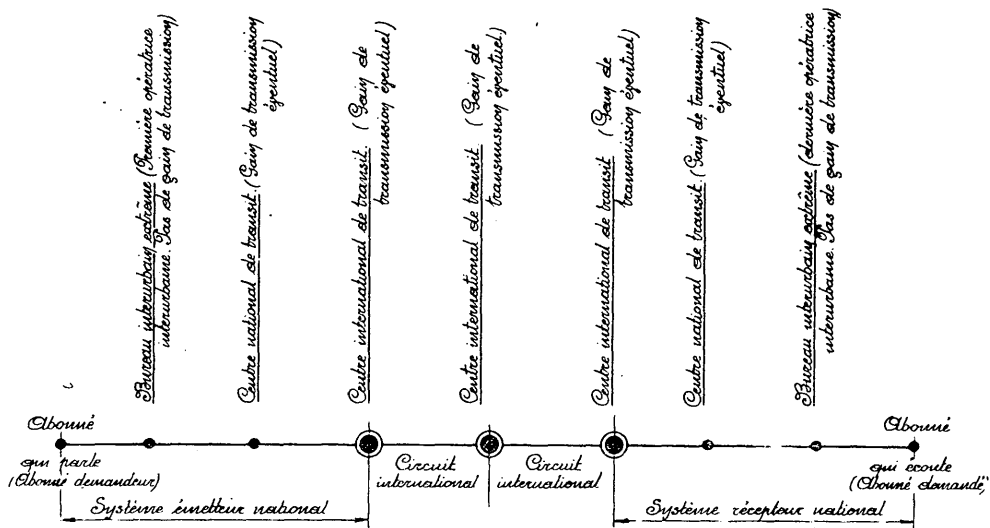 Bureau interurbain extrême (Première opératrice
interurbaine. Pas de gain de transmission)
Centre national de transit. (Gain de transmission
éventuel)
Centre international de transit. (Gain de
transmission éventuel)
Centre international de transit. (Gain de
transmission éventuel)
Centre international de transit (Gain de
transmission éventuel)
Centre national de transit. (Gain de transmission
éventuel)
Bureau interurbain extrême (dernière opératrice
interurbaine. Pas de gain de transmission)
Abonné
qui parle
(Abonné demandeur)
Circuit
international
Circuit
international
Abonné
qui écoute
(Abonné demandé)
Système émetteur national
Système récepteur national